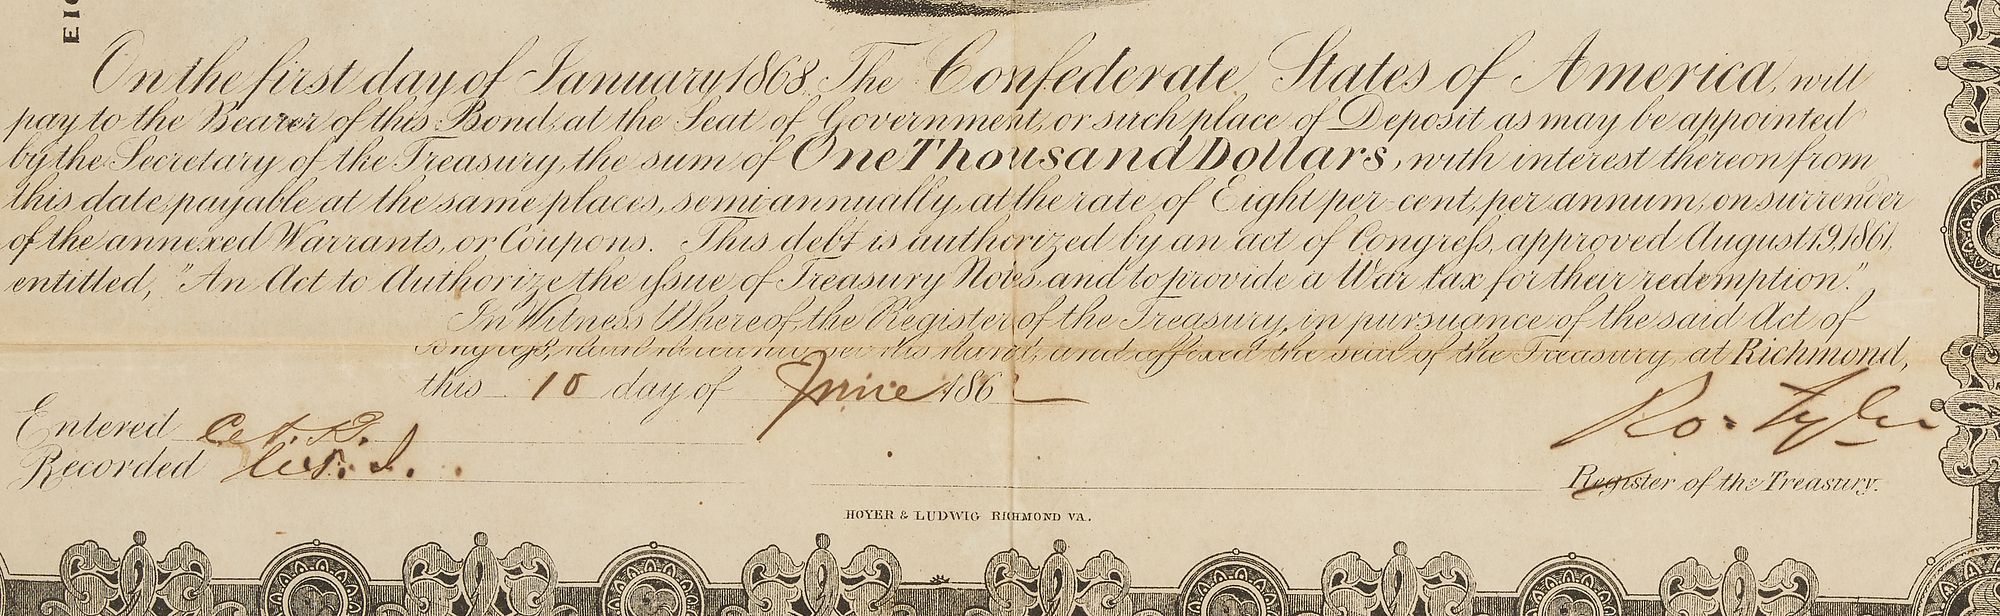 EIG
On the first day of January 1868 The Confederate States of America, will
pay to the Bearer of this Bond, at the Seat of Government, or such place of Deposit as may be appointed
by the Secretary of the Treasury, the sum of One Thousand Dollars, with interest thereon from
this date, payable at the same places, semi-annually, at the rate of Eight per-cent, per annum, on surrender
of the annexed Warrants, or Coupons. This debt is authorized by an act of Congress, approved August 19, 1861,
entitled, "An Act to Authorize the issue of Treasury Notes, and to provide a War tax for their redemption."
In Witness Whereof, the Register of the Treasury, in pursuance of the said Act of
Congress, hath hereunto set his hand, and affixed the seal of the Treasury, at Richmond,
this 10 day of June 1862
Entered
Recorded
Ro. Tyler
Register of the Treasury.
HOYER & LUDWIG RICHMOND VA.